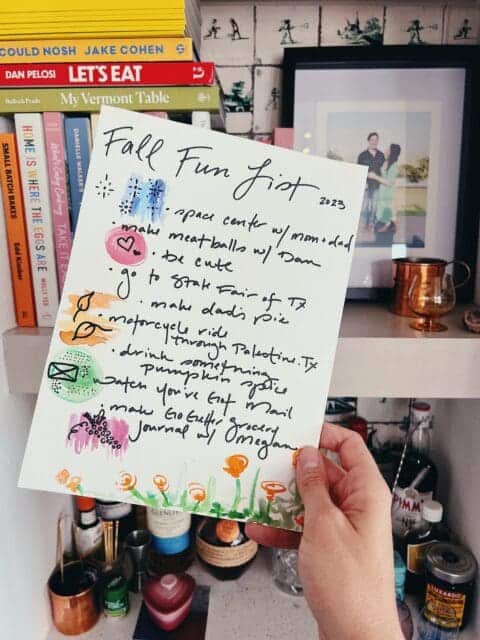 COULD NOSH JAKE COHEN
DAN PELOSI LET'S EAT
My Vermont Table
SMALL BATCH BAKES
Edd Kimber
HOME IS WHERE THE EGGS ARE
MOLLY YEH
What's Gaby Cooking
TAKE IT
DANIELLE WALKER'S
Fall Fun List
2023
• space center w/ mom + dad
make meatballs w/ Dan
• be cute
• go to State Fair of TX
• make dad's pie
• motorcycle ride
through Palestine, TX
• drink something
pumpkin spice
watch You've Got Mail
• make GoGetter grocery
journal w/ Megan
GLENLI
PIMM
LUXARDO